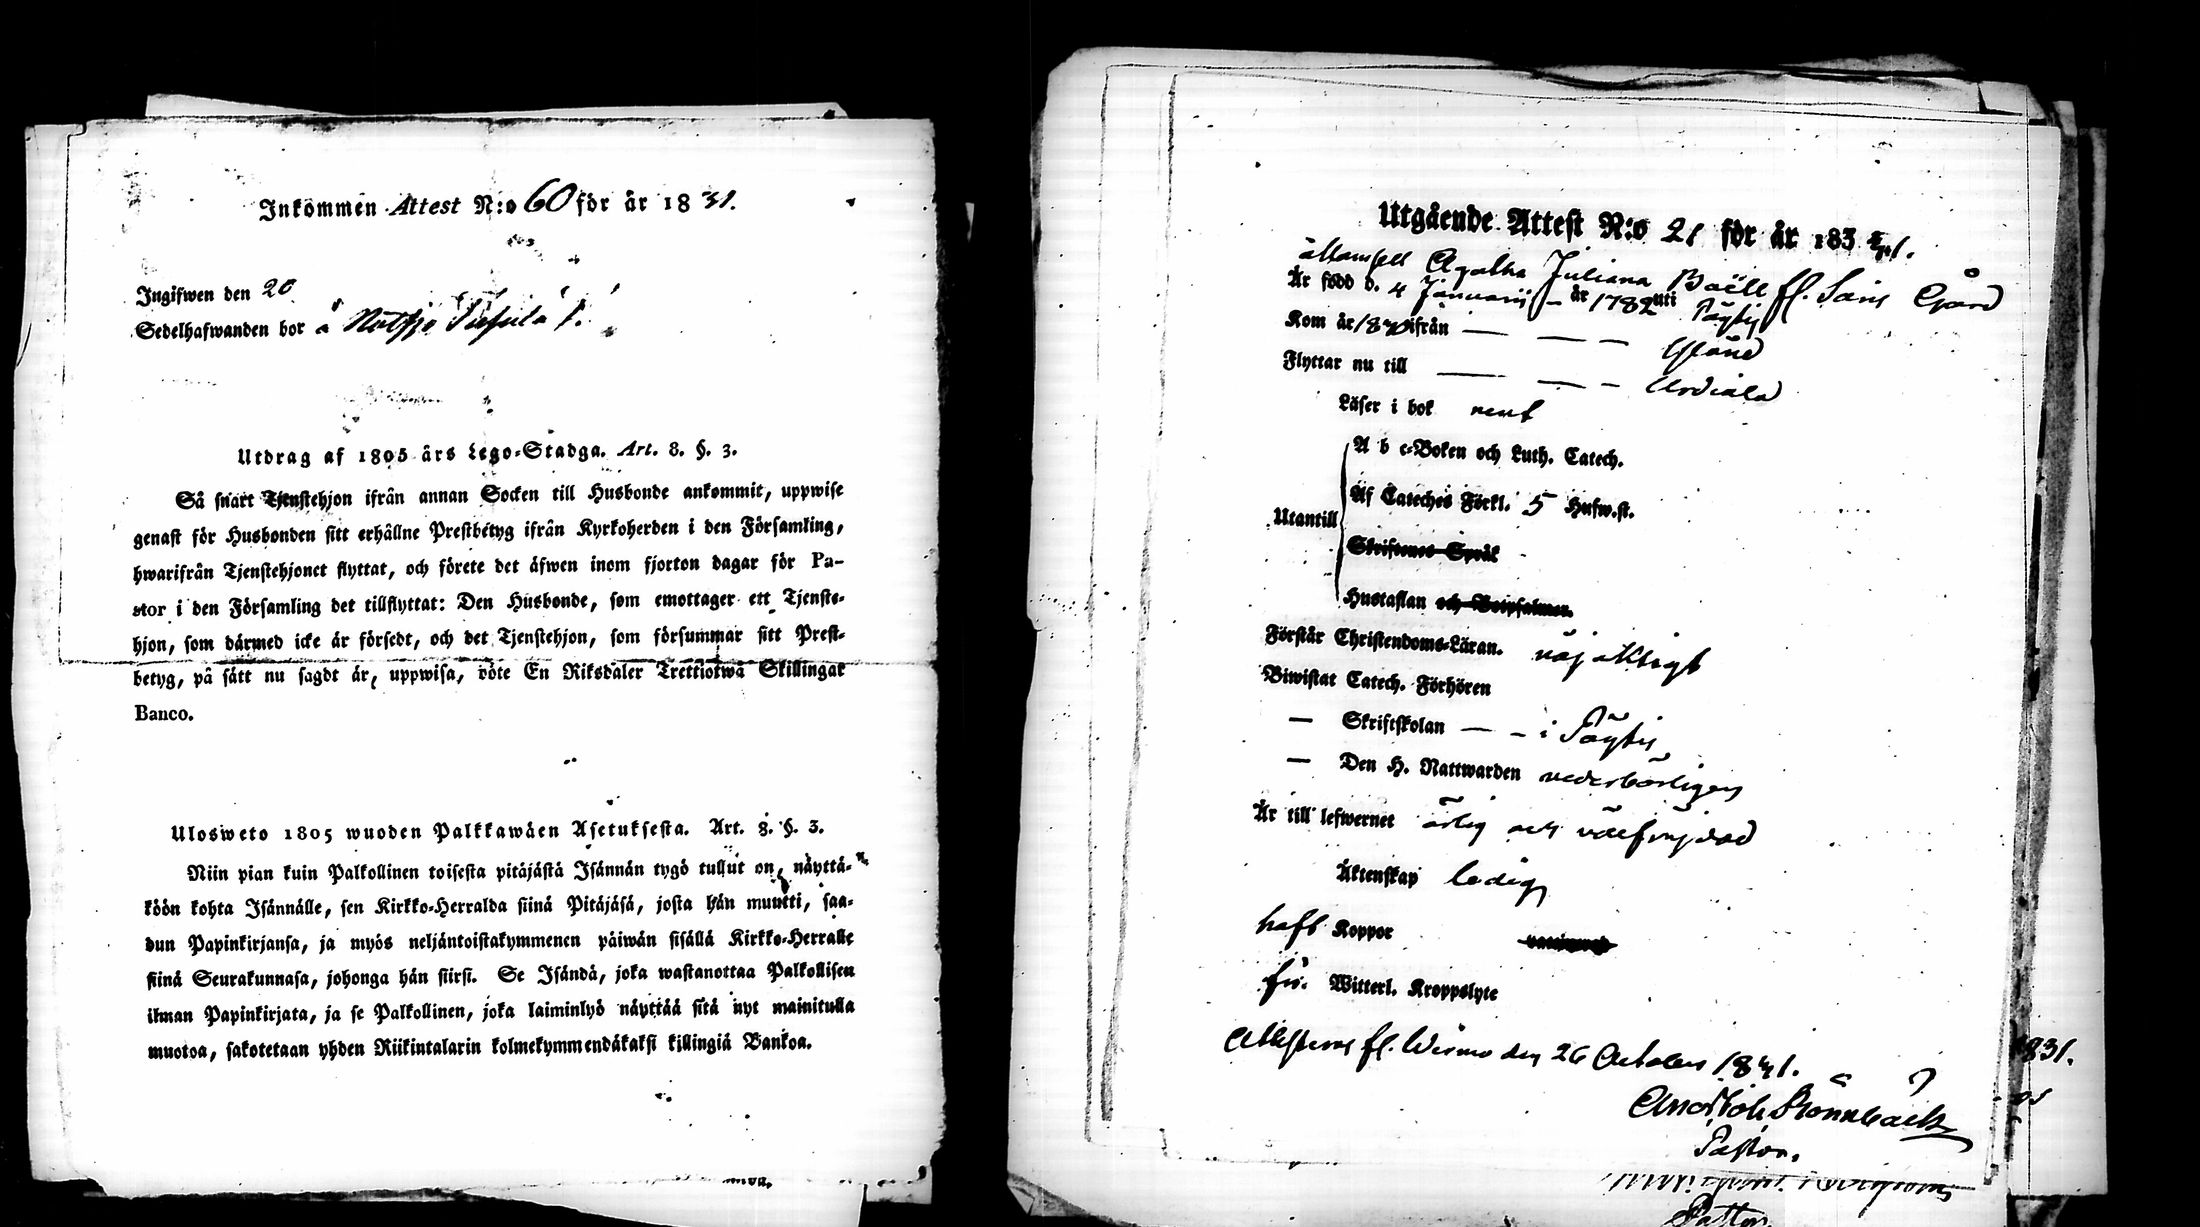 Inkommen Attest N:o 60 för år 1831.
Ingifwen den 20
Sedelhafwanden bor å
Utdrag af 1805 års Lego-Stadga. Art. 8. §. 3.
Så snart Tjenstehjon ifrån annan Socken till Husbonde ankommit, uppwise
genast för Husbonden sitt erhållne Prestbetyg ifrån Kyrkoherden i den Församling,
hwarifrån Tjenstehjonet flyttat, och förete det äfwen inom fjorton dagar för Pa-
stor i den Församling det tillflyttat: Den Husbonde, som emottager ett Tjenste-
hjon, som därmed icke är försedt, och det Tjenstehjon, som försummar sitt Prest-
betyg, på sätt nu sagdt är, uppwisa, böte En Riksdaler Trettiotwå Skillingar
Banco.
Ulosweto 1805 wuoden Palkkawäen Asetuksesta. Art. 8. §. 3.
Niin pian kuin Palkollinen toisesta pitäjästä Isännän tygö tullut on, näyttä-
köön kohta Isännälle, sen Kirkko-Herralda siinä Pitäjäsä, josta hän muutti, saa-
dun Papinkirjansa, ja myös neljäntoistakymmenen päiwän sisällä Kirkko-Herralle
siinä Seurakunnasa, johonga hän siirsi. Se Isändä, joka wastanottaa Palkollisen
ilman Papinkirjata, ja se Palkollinen, joka laiminlyö näyttää sitä nyt mainitulla
muotoa, sakotetaan yhden Riikintalarin kolmekymmendäkaksi killingiä Bankoa.
Utgående Attest N:o 21 för år 1831.
Mamsell Agatha Juliana Boëll fl. Sains Gård
Är född d. 4 Januarii – år 1782 uti Pöytis
Kom år 1830 ifrån — — — Yläne
Flyttar nu till — — – Urdiala
Läser i bok rent
A b c-Boken och Luth. Catech.
Af Cateches Förkl. 5 Hufw.st.
Utantill
Skriftenes Språk
Hustaflan och Botpsalmer.
Förstår Christendoms-Läran. nöjaktigt
Biwistat Catech. Förhören
— Skriftskolan — – i Pöytis
— Den H. Nattwarden vederbörligen
Är till lefwernet ärlig och välfrejdad
Äktenskap ledig
haft Koppor
fri. Witterl. Kroppslyte
Attesteras fl. Wirmo den 26 October 1831.
Rönnbäck
Pastor.
1831.
Pastor